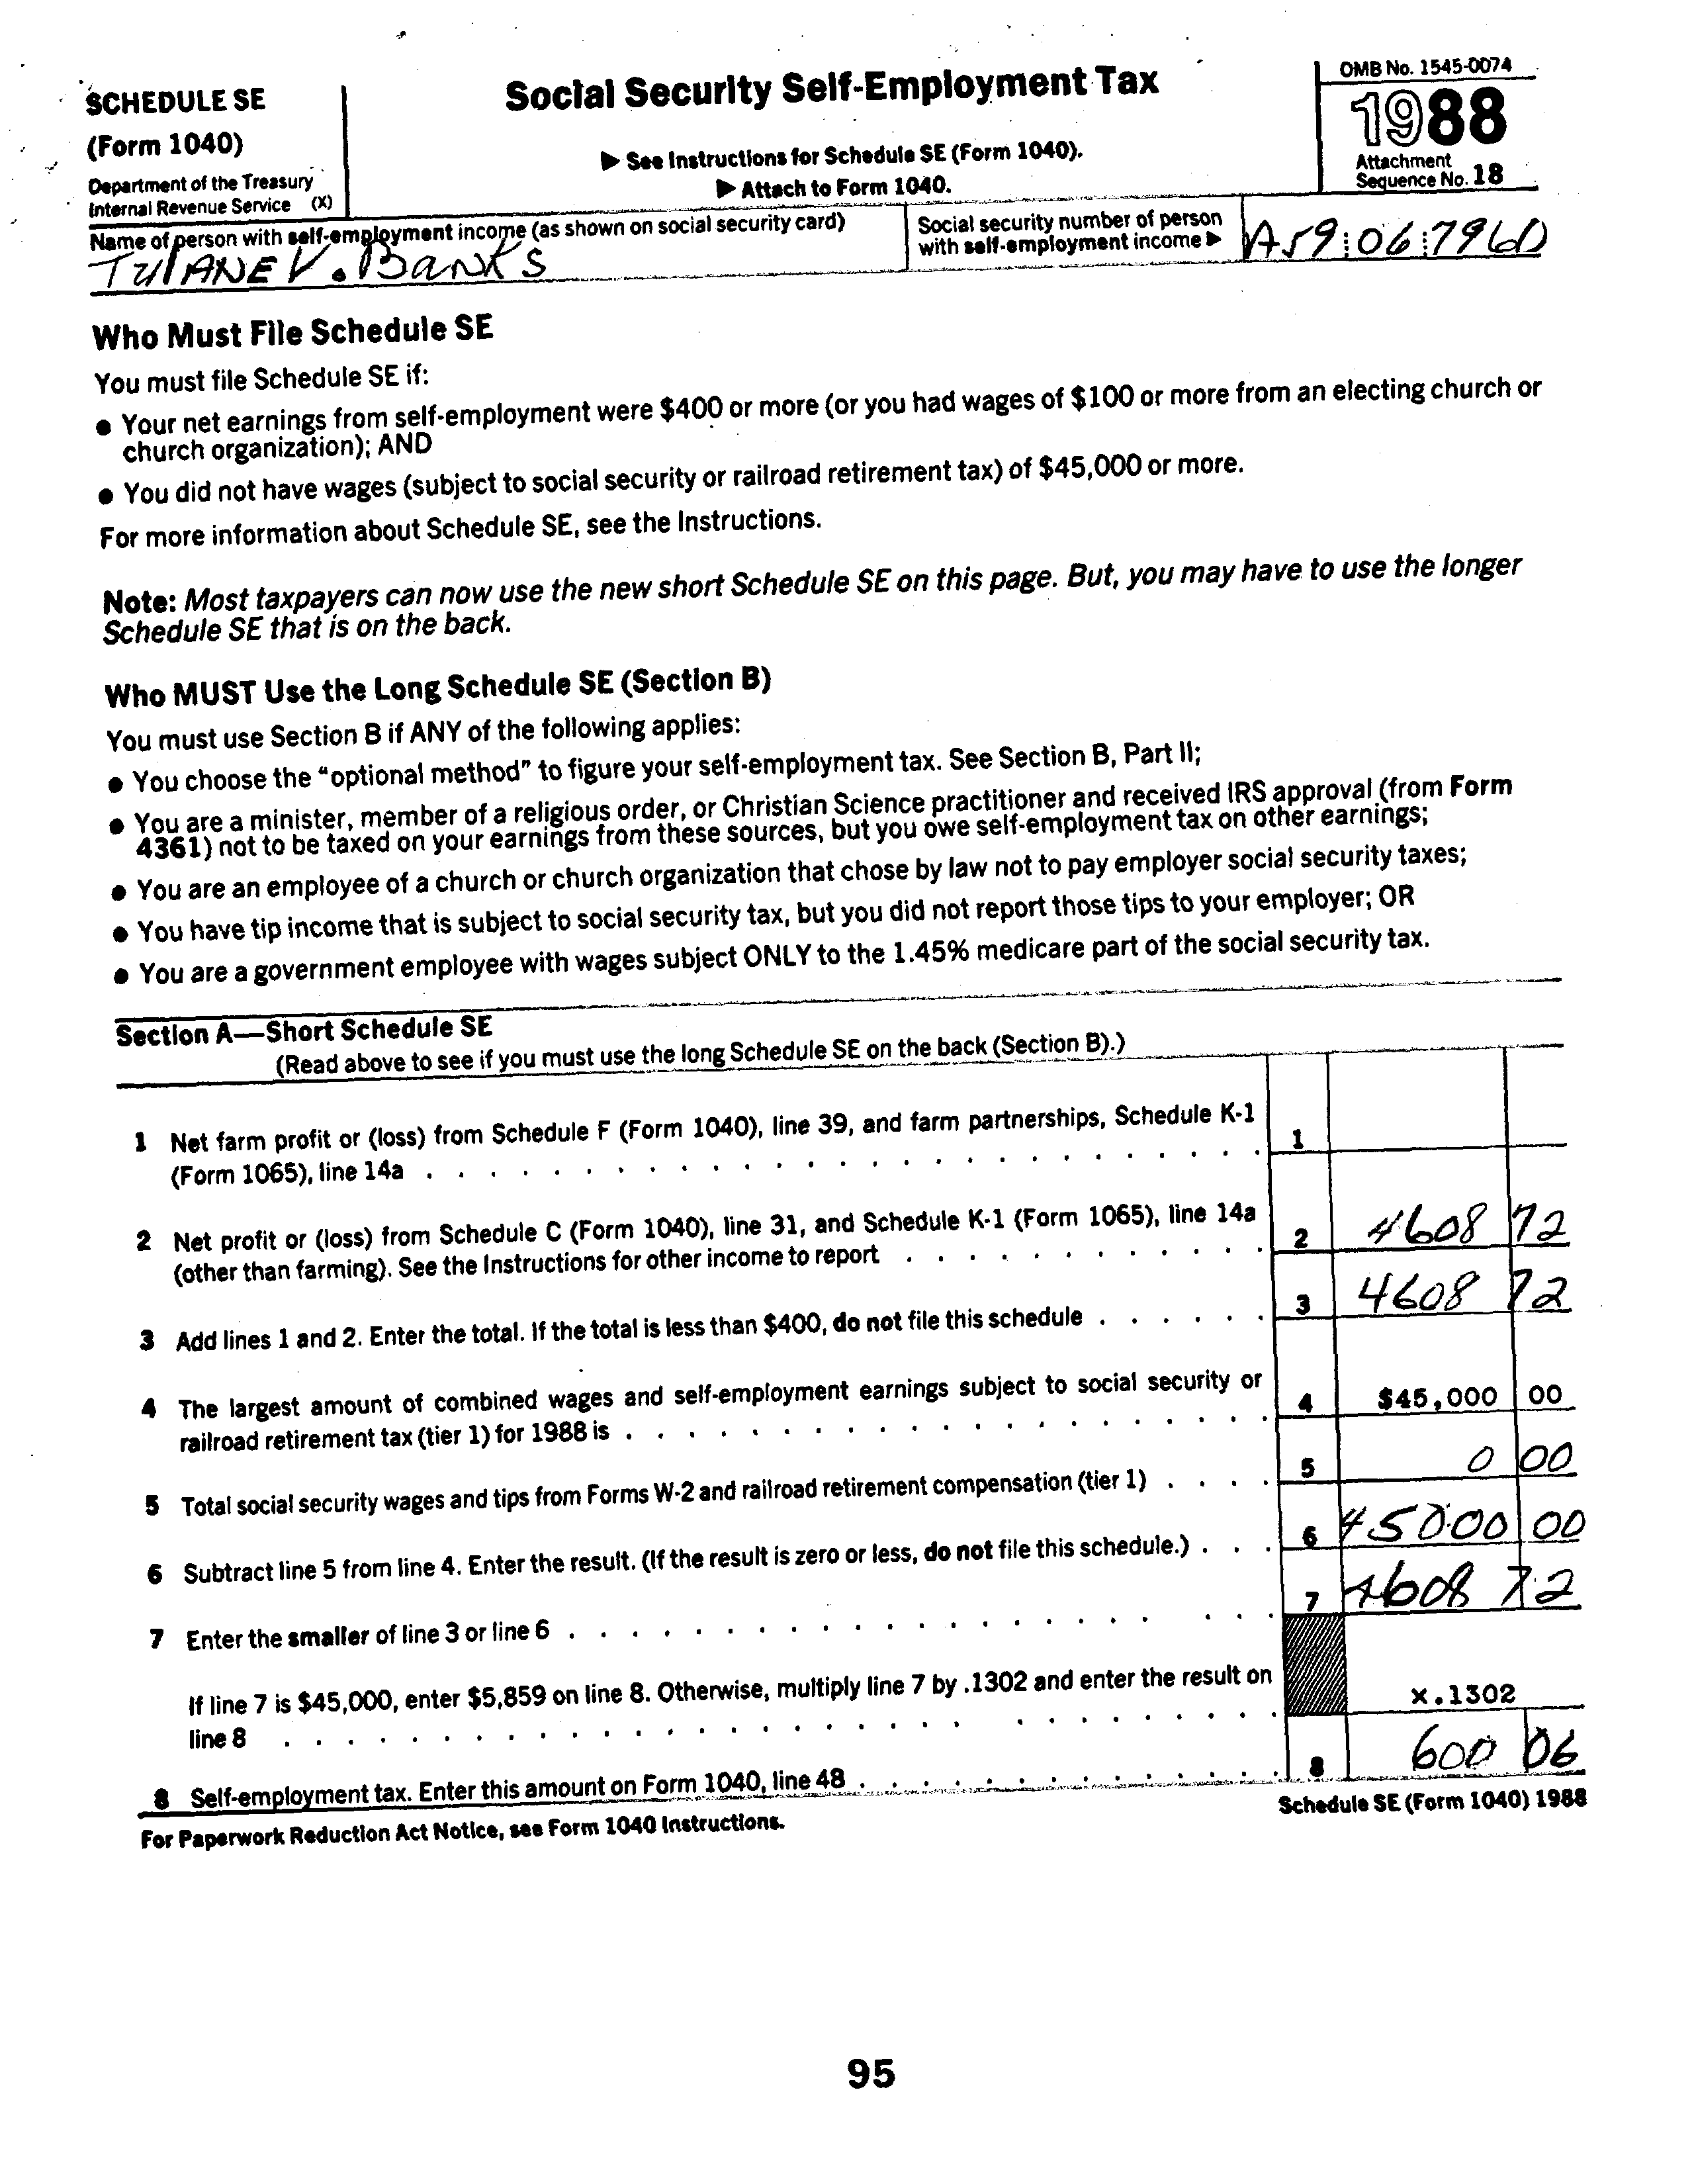 SCHEDULE SE
(Form 1040)
Department of the Treasury
Internal Revenue Service (X)
Social Security Self-Employment Tax
▶ See Instructions for Schedule SE (Form 1040).
▶ Attach to Form 1040.
OMB No. 1545-0074
1988
Attachment
Sequence No. 18
Name of person with self-employment income (as shown on social security card)
TulANE V. Banks
Social security number of person
with self-employment income ▶
A59:06:796D
Who Must File Schedule SE
You must file Schedule SE if:
● Your net earnings from self-employment were $400 or more (or you had wages of $100 or more from an electing church or
church organization); AND
● You did not have wages (subject to social security or railroad retirement tax) of $45,000 or more.
For more information about Schedule SE, see the Instructions.
Note: Most taxpayers can now use the new short Schedule SE on this page. But, you may have to use the longer
Schedule SE that is on the back.
Who MUST Use the Long Schedule SE (Section B)
You must use Section B if ANY of the following applies:
● You choose the "optional method" to figure your self-employment tax. See Section B, Part II;
● You are a minister, member of a religious order, or Christian Science practitioner and received IRS approval (from Form
4361) not to be taxed on your earnings from these sources, but you owe self-employment tax on other earnings;
● You are an employee of a church or church organization that chose by law not to pay employer social security taxes;
● You have tip income that is subject to social security tax, but you did not report those tips to your employer; OR
● You are a government employee with wages subject ONLY to the 1.45% medicare part of the social security tax.
Section A—Short Schedule SE
(Read above to see if you must use the long Schedule SE on the back (Section B).)
1 Net farm profit or (loss) from Schedule F (Form 1040), line 39, and farm partnerships, Schedule K-1
(Form 1065), line 14a . . . . . . . . . . . . . . . . . . . . . . . . . . 1
2 Net profit or (loss) from Schedule C (Form 1040), line 31, and Schedule K-1 (Form 1065), line 14a
(other than farming). See the Instructions for other income to report . . . . . . . . . . . . 2 4608 72
3 Add lines 1 and 2. Enter the total. If the total is less than $400, do not file this schedule . . . . . . 3 4608 72
4 The largest amount of combined wages and self-employment earnings subject to social security or
railroad retirement tax (tier 1) for 1988 is . . . . . . . . . . . . . . . . . . . . . 4 $45,000 00
5 Total social security wages and tips from Forms W-2 and railroad retirement compensation (tier 1) . . . . 5 0 00
6 Subtract line 5 from line 4. Enter the result. (If the result is zero or less, do not file this schedule.) . . . 6 45000 00
7 Enter the smaller of line 3 or line 6 . . . . . . . . . . . . . . . . . . . . . . 7 4608 72
If line 7 is $45,000, enter $5,859 on line 8. Otherwise, multiply line 7 by .1302 and enter the result on
line 8 . . . . . . . . . . . . . . . . . . . . . . . . . . . . . . x.1302
8 Self-employment tax. Enter this amount on Form 1040, line 48 . . . . . . . . . . . . . . 8 600 06
For Paperwork Reduction Act Notice, see Form 1040 Instructions.
Schedule SE (Form 1040) 1988
95